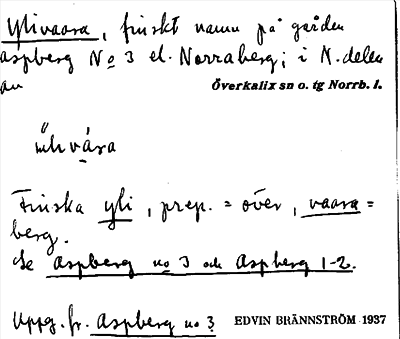 Ylivaara, finskt namn på gården
Aspberg No 3 el. Norraberg; i N. delen
av Överkalix sn o. tg Norrb. l.
Finska yli, prep. = över, vaara =
berg.
Se Aspberg no 3 och Aspberg 1-2.
Uppg. fr. Aspberg no 3 EDVIN BRÄNNSTRÖM 1937